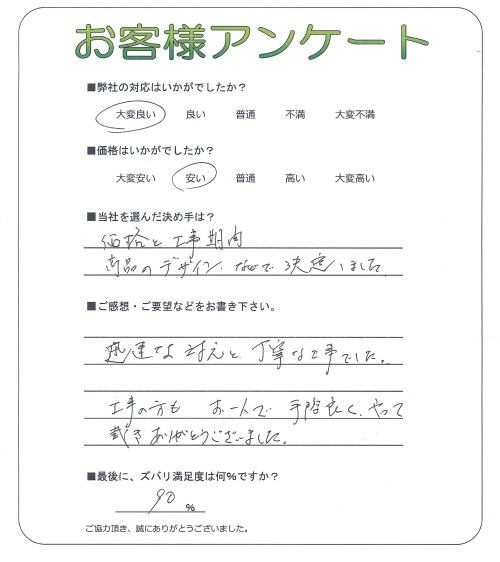 お客様アンケート
■弊社の対応はいかがでしたか？
大変良い 良い 普通 不満 大変不満
■価格はいかがでしたか？
大変安い 安い 普通 高い 大変高い
■当社を選んだ決め手は？
価格と工事期間
商品のデザインなどで決定しました
■ご感想・ご要望などをお書き下さい。
迅速な対応と、丁寧な工事でした。
工事の方も お一人で 手際良く、やって
戴きありがとうございました。
■最後に、ズバリ満足度は何%ですか？
90 %
ご協力頂き、誠にありがとうございました。